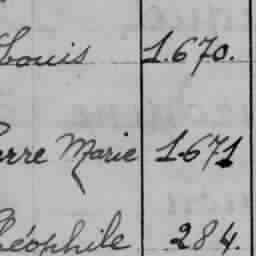 Louis 1.670.
erre Marie 1671
éophile 284.